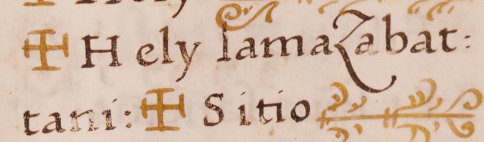 ✠ Hely lamaZabat:
tani: ✠ Sitio